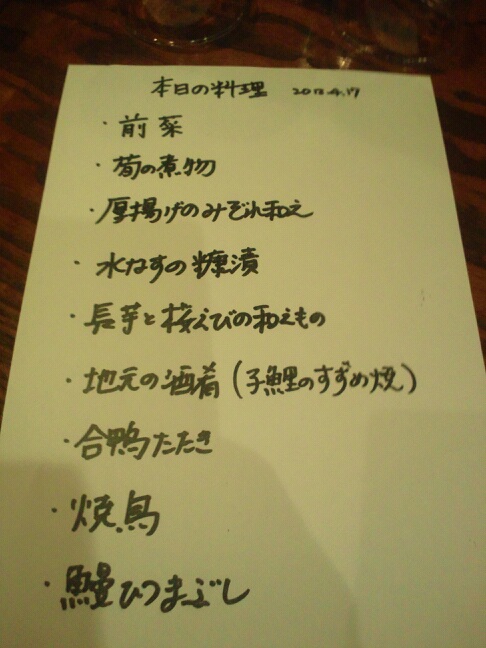 本日の料理 2013.4.17
・前菜
・筍の煮物
・厚揚げのみぞれ和え
・水なすの糠漬
・長芋と桜えびの和えもの
・地元の酒肴(子鯉のすずめ焼)
・合鴨たたき
・焼鳥
・鰻ひつまぶし